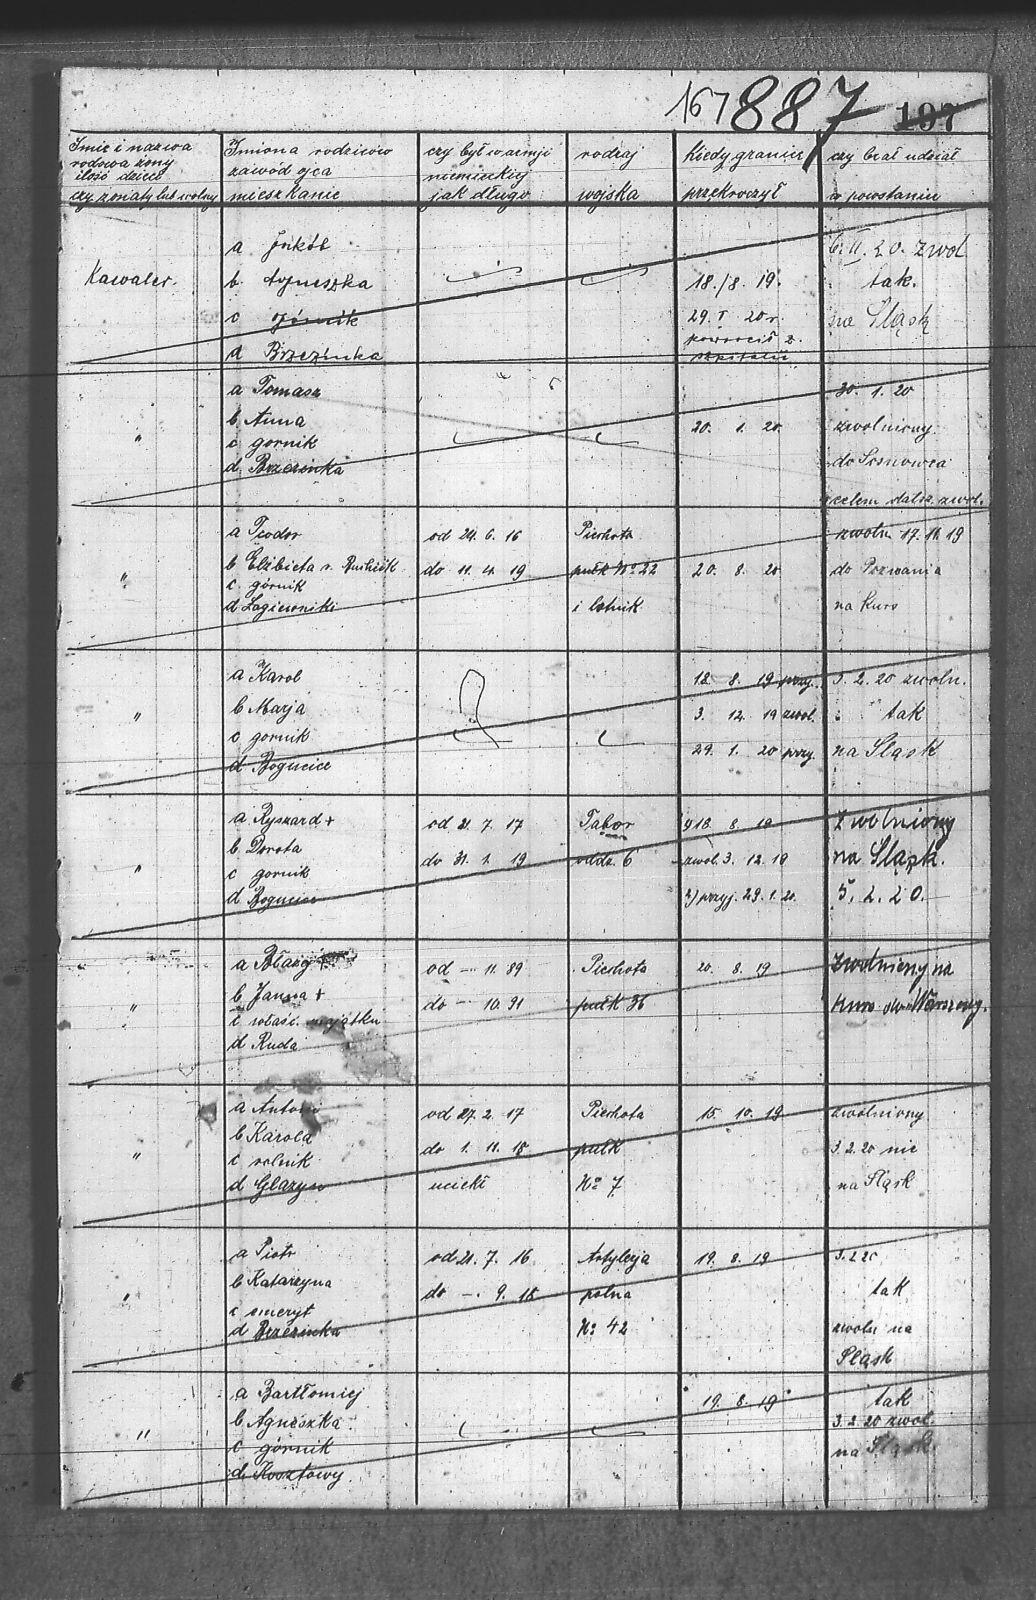 167 887 197
Imię i nazwa
rodowa żony
ilość dzieci
czy żonaty lub wolny
Imiona rodziców
zawód ojca
mieszkanie
czy był w armji
niemieckiej
jak długo
rodzaj
wojska
kiedy granicę
przekroczył
czy brał udział
w powstaniu
Kawaler.
a Jakób
b Agnieszka
c górnik
d Brzezinka
18. /8. 19.
29. I 20 r.
powrócił z
szpitalu
6. II. 20. zwol
tak.
na Śląsk
"
a Tomasz
b Anna
c gornik
d Brzezinka
20. 1. 20.
30. 1. 20
zwolniony
do Sosnowca
celem dalsz. zwol.
"
a Teodor
b Elżbieta r.
c górnik
d Łagiewniki
od 24. 6. 16
do 11. 4. 19
Piechota
pułk No 22
i lotnik
20. 8. 20
zwoln 17. 11. 19
do Poznania
na kurs
"
a Karol
b Marja
c gornik
d Bogucice
18. 8. 19 przy.
3. 12. 19 zwol.
29. 1. 20 przy.
5. 2. 20 zwoln.
tak
na Śląsk
"
a Ryszard +
b Dorota
c gornik
d Bogucice
od 21. 7. 17
do 31. 1. 19
Tabor
oddz. 6
1) 18. 8. 19
zwol. 3. 12. 19
2) przyj. 29. 1. 20.
Zwolniony
na Śląsk.
5. 2. 20.
"
a Błażej
b Janna +
c właść. majątku
d Ruda
od — 11. 89
do — 10. 91
Piechota
pułk 36
20. 8. 19
Zwolniony na
kurs
"
a Antoni
b Karola
c rolnik
d
od 27. 2. 17
do 1. 11. 18
uciekł
Piechota
pułk
No 7
15. 10. 19
zwolniony
3. 2. 20 nie
na Śląsk
"
a Piotr
b Katarzyna
c emeryt
d Brzezinka
od 21. 7. 16
do —. 9. 18
Artylerja
polna
No 42
19. 8. 19
3. 2 20
tak
zwoln na
Śląsk
"
a Bartłomiej
b Agnieszka
c górnik
d Kosztowy
19. 8. 19
tak
3. 2. 20 zwol.
na Śląsk.